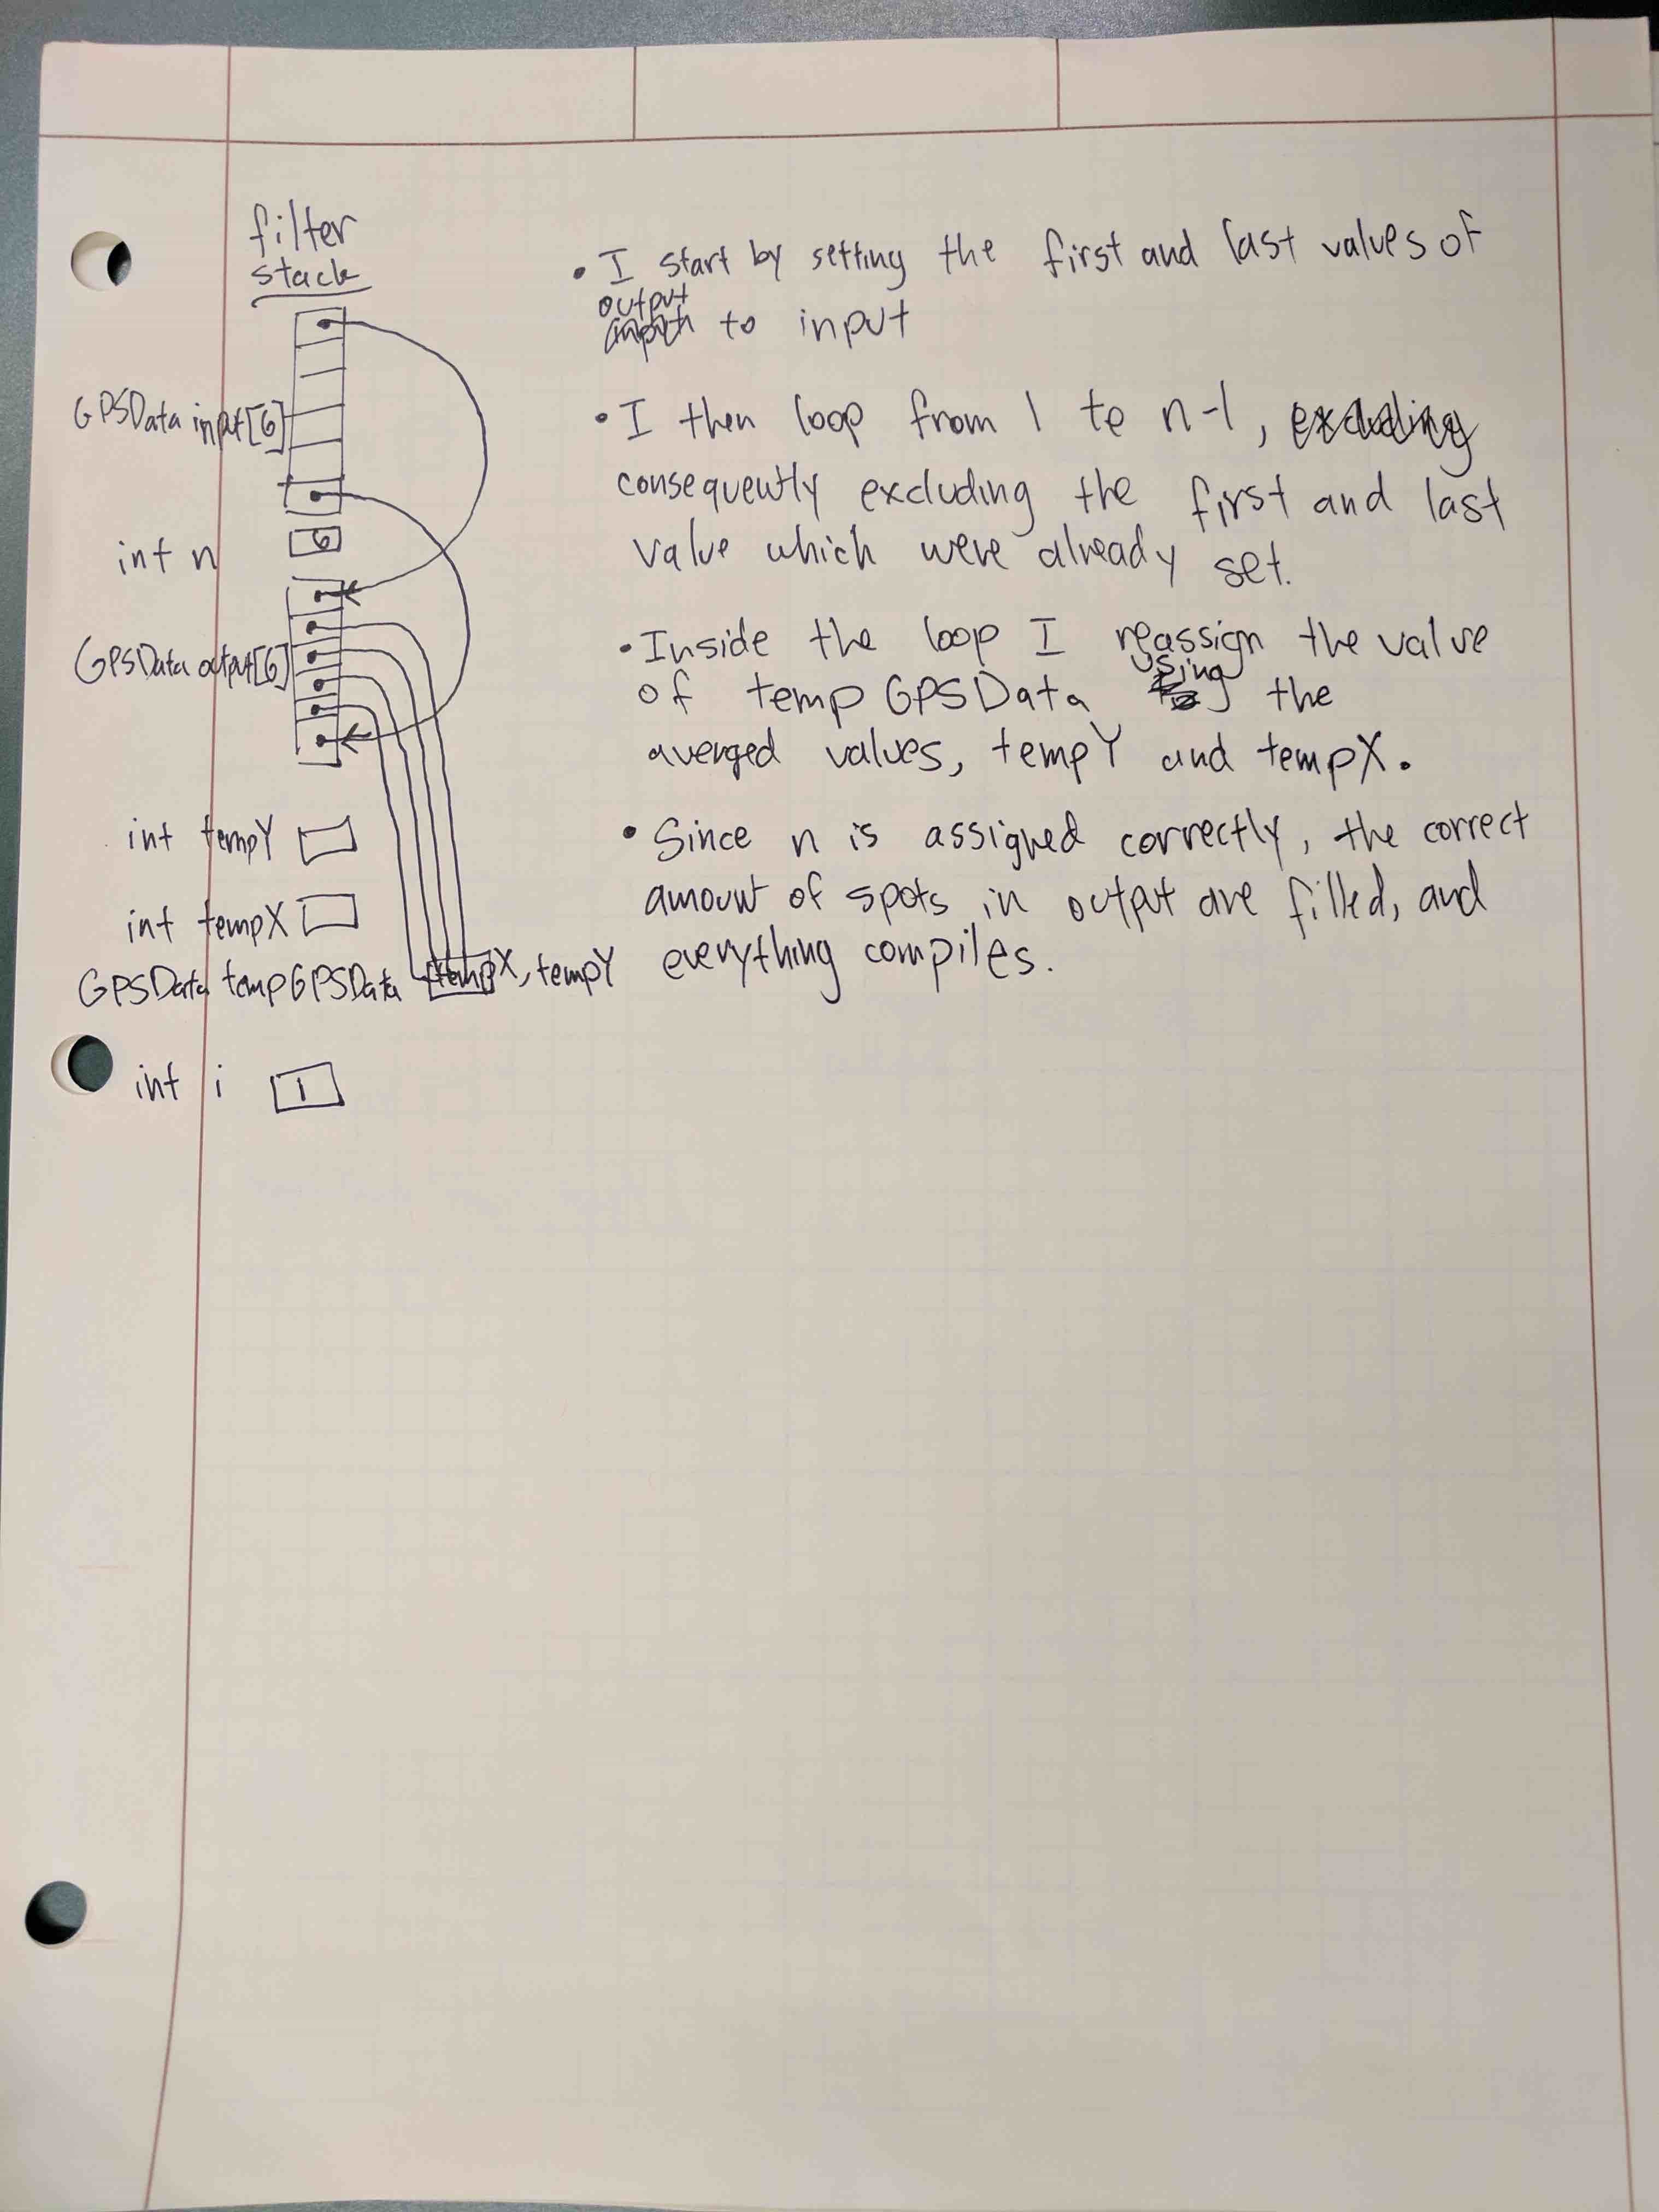 filter
stack
GPSData input[6]
int n 6
GPSData output[6]
int tempY
int tempX
GPSData tempGPSData tempX, tempY
int i 1
• I start by setting the first and last values of
output
to input
• I then loop from 1 to n-1, excluding
consequently excluding the first and last
value which were already set.
• Inside the loop I reassign the value
of temp GPSData using the
averaged values, tempY and tempX.
• Since n is assigned correctly, the correct
amount of spots in output are filled, and
everything compiles.